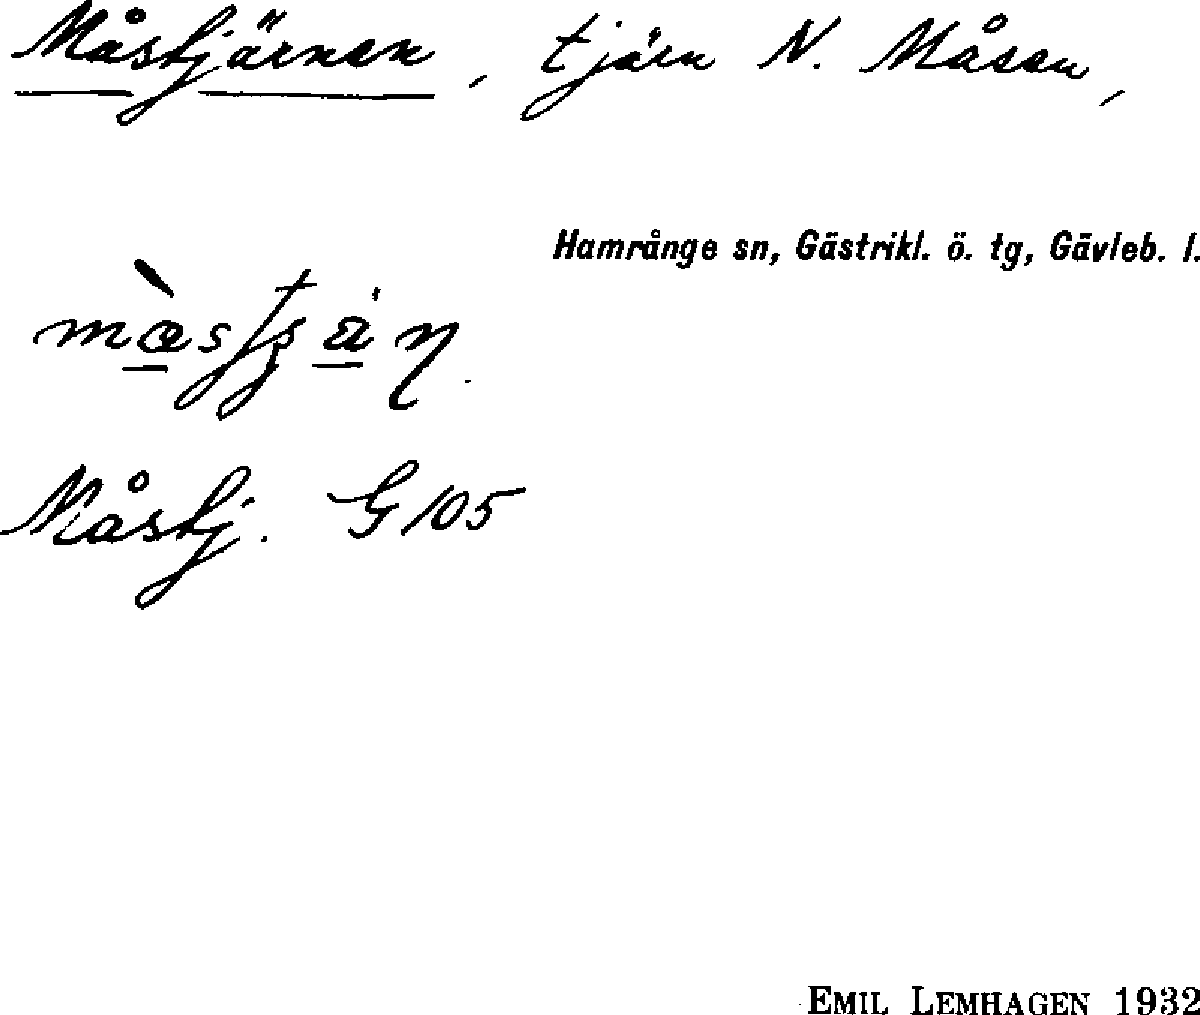 Måstjärnen, tjärn N. Måsen,
Hamrånge sn, Gästrikl. ö. tg, Gävleb. l.
Måstj. G 105
EMIL LEMHAGEN 1932